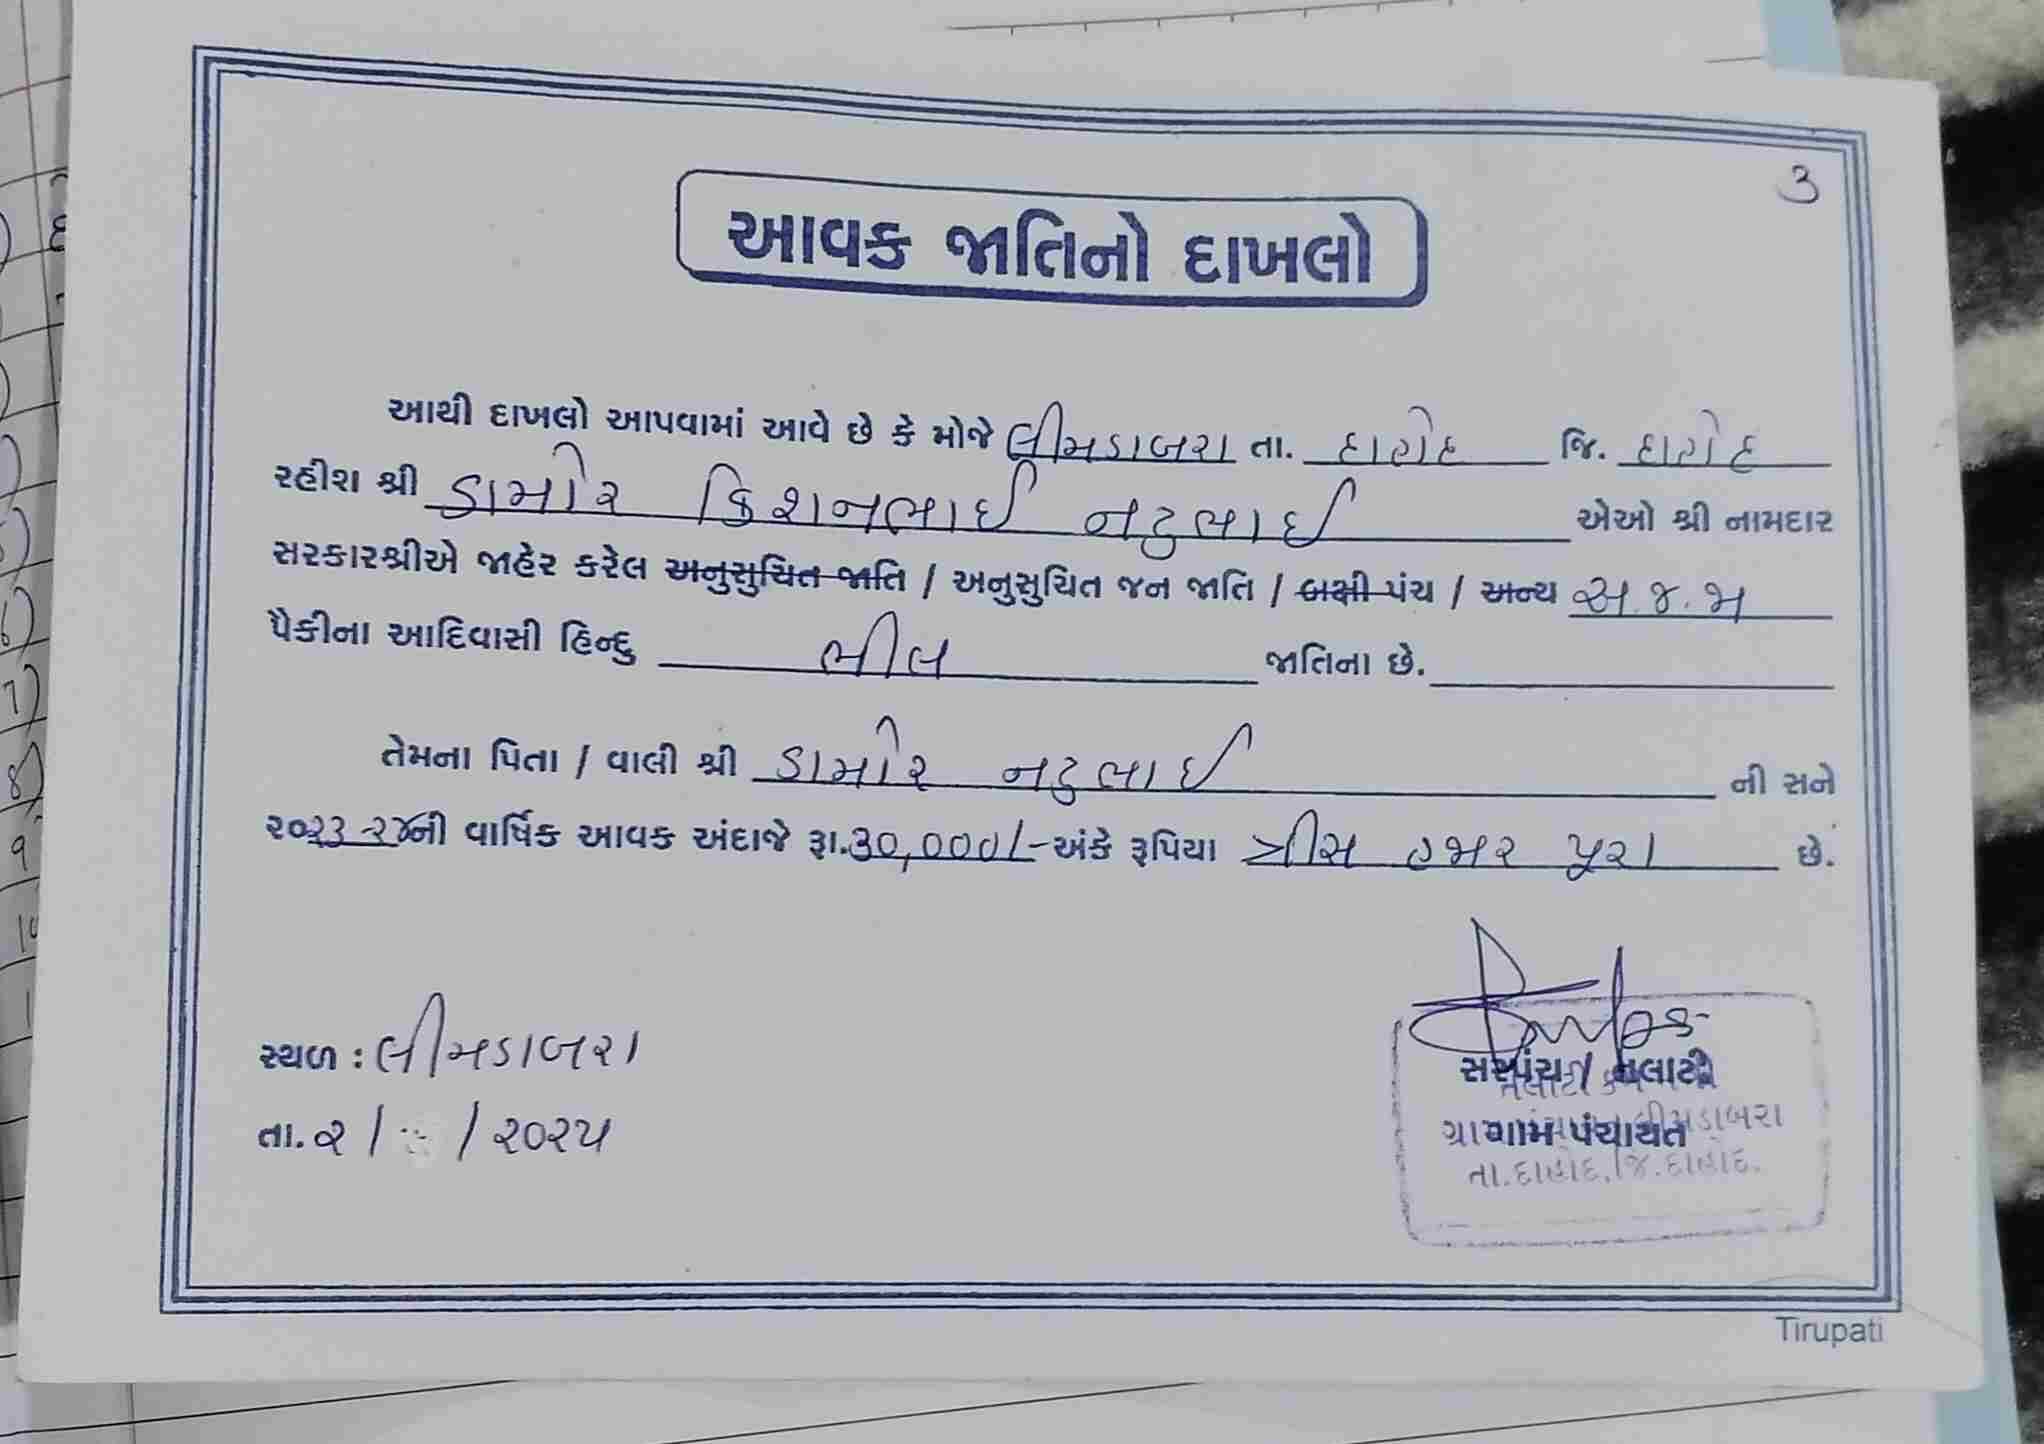 ૩
આવક જાતિનો દાખલો
આથી દાખલો આપવામાં આવે છે કે મોજે લીમડાબરા તા. દાહોદ જિ. દાહોદ
રહીશ શ્રી ડામોર કિશનભાઈ નટુભાઈ એઓ શ્રી નામદાર
સરકારશ્રીએ જાહેર કરેલ અનુસુચિત જાતિ / અનુસુચિત જન જાતિ / બક્ષી પંચ / અન્ય અ.જ.જા
પૈકીના આદિવાસી હિન્દુ ભીલ જાતિના છે.
તેમના પિતા / વાલી શ્રી ડામોર નટુભાઈ ની સને
૨૦૨૩-૨૪ની વાર્ષિક આવક અંદાજે રૂા.૩૦,૦૦૦/- અંકે રૂપિયા ત્રીસ હજાર પુરા છે.
સ્થળ : લીમડાબરા
તા. ૨ / / ૨૦૨૫
સરપંચ / તલાટી
ગ્રામ પંચાયત
લીમડાબરા
તા.દાહોદ,જિ.દાહોદ.
Tirupati